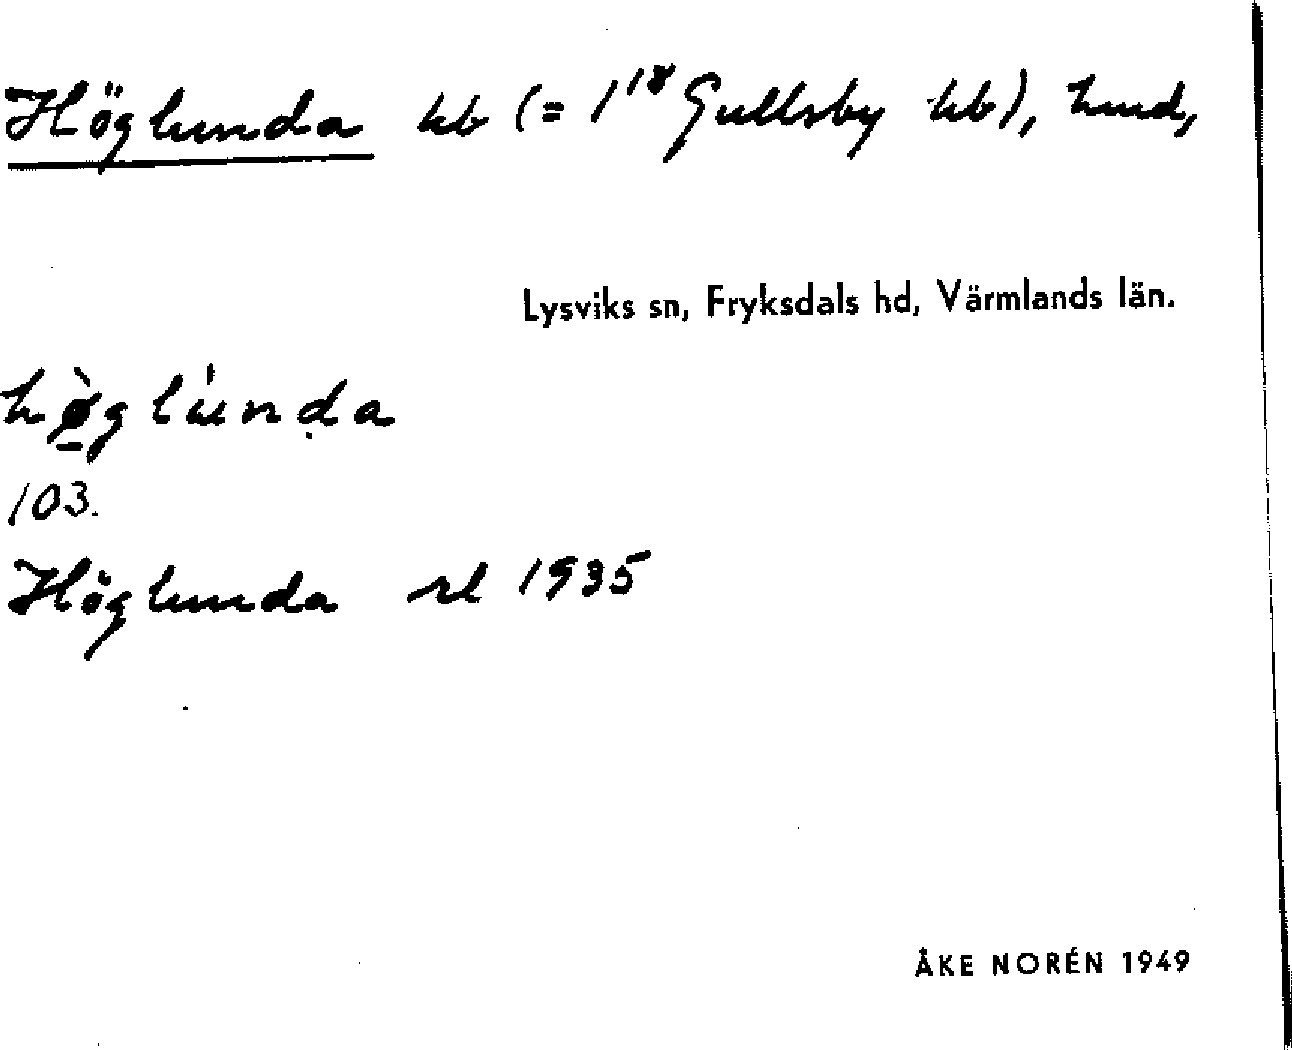 Höglunda hb (= 1¹⁸ Gullsby hb), hmd,
Lysviks sn, Fryksdals hd, Värmlands län.
hø̀glúnḍa
103.
Höglunda rl 1935
ÅKE NORÉN 1949